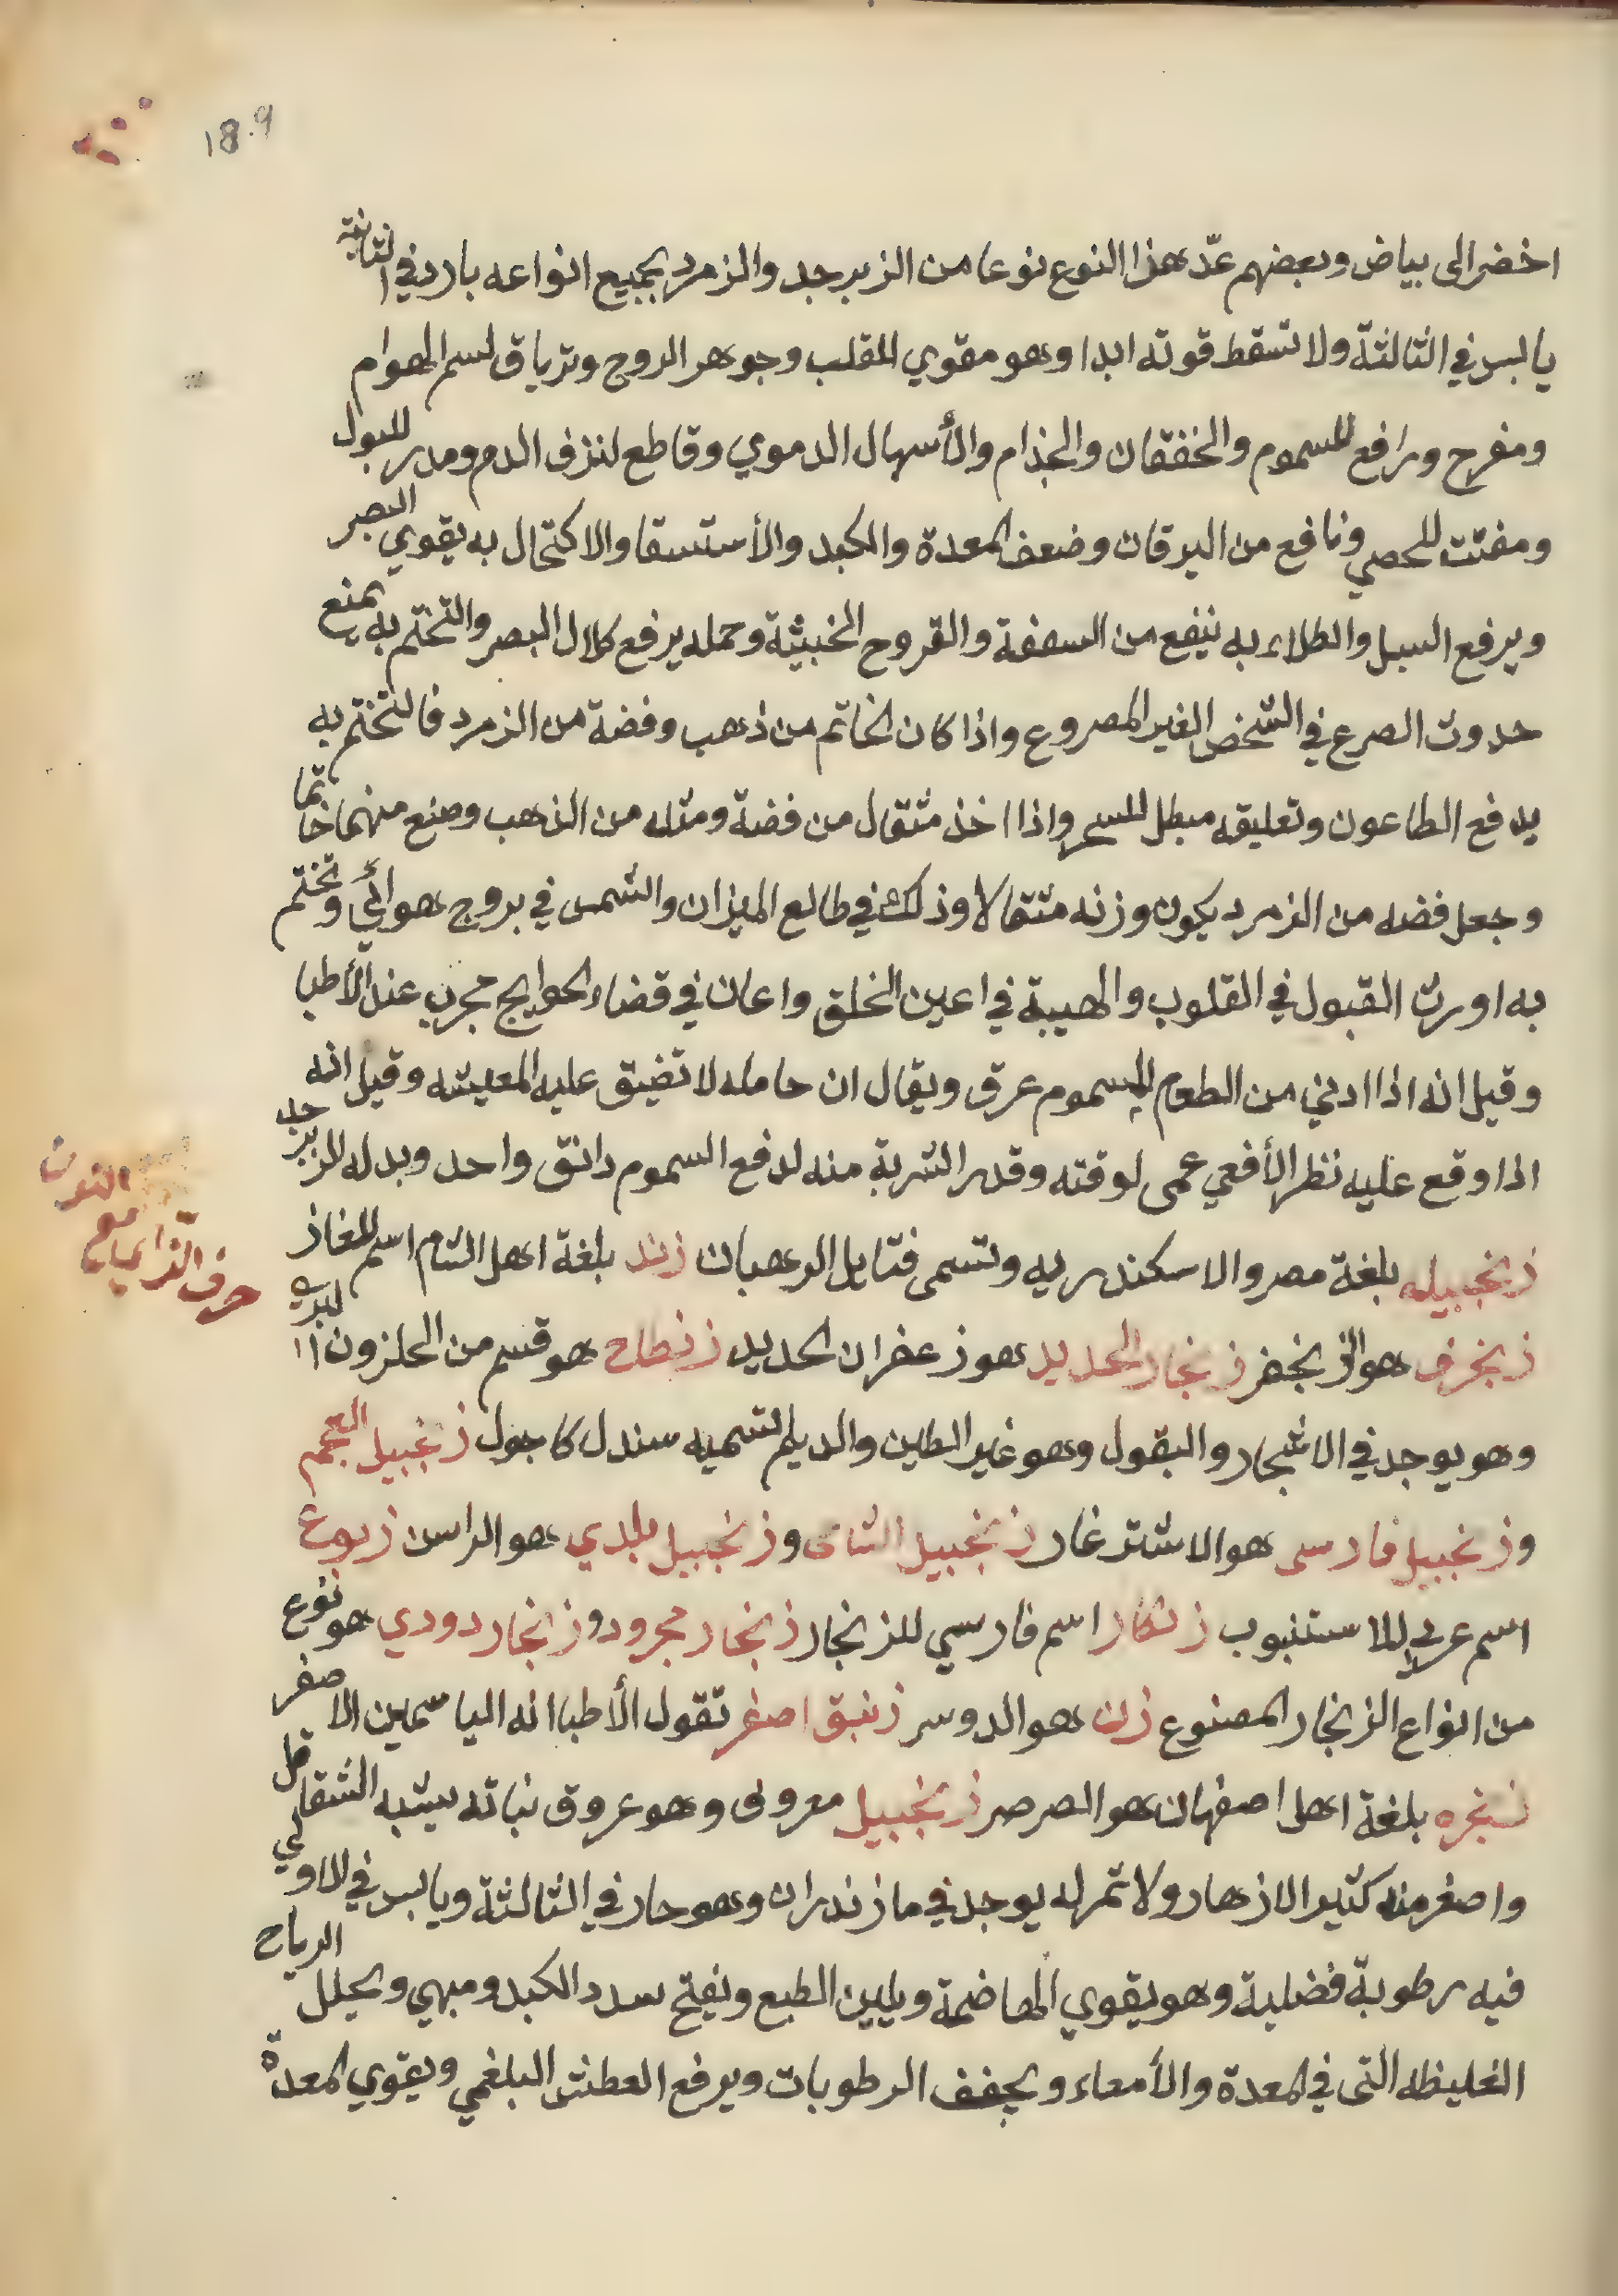 18.9
اخضر الى بياض وبعضهم عدّ هذا النوع نوعا من الزبرجد والزمرد بجميع انواعه بارد في الثانية
يابس في الثالثة ولا تسقط قوته ابدا وهو مقوي للقلب وجوهر الروح وترياق لسم الهوام
ومفرح ورافع للسموم والخفقان والجذام والأسهال الدموي وقاطع لنزف الدم ومدر للبول
ومفتت للحصي ونافع من اليرقان وضعف المعدة والكبد والأستسقا والاكتحال به يقوي البصر
ويرفع السبل والطلاء به ينفع من السعفة والقروح الخبيثة وحمله يرفع كلال البصر والتختم به يمنع
حدوث الصرع في الشخص الغير المصروع واذا كان الخاتم من ذهب وفضة من الزمرد فالتختم به
يدفع الطاعون وتعليقه مبطل للسحر واذا اخذ مثقال من فضة ومثله من الذهب وصنع منهما خاتما
وجعل فضه من الزمرد يكون وزنه مثقالا وذلك في طالع الميزان والشمس في بروج هوائي وتختم
به اورث القبول في القلوب والهيبة في اعين الخلق واعان في قضاء الحوايج مجرب عند الأطبا
وقيل انه اذا ادني من الطعام المسموم عرق ويقال ان حامله لا تضيق عليه المعيشه وقيل انه
اذا وقع عليه نظر الأفعي عمى لوقته وقدر الشربة منه لدفع السموم دانق واحد وبدله الزبرجد
حرف الزاي مع النون
زنجبيله بلغة مصر والاسكندريه وتسمى فتايل الرهبان زند بلغة اهل الشام اسم للغاز
زنجرف هو الزنجفر زنجار الحديد هو زعفران الحديد زنطاح هو قسم من الحلزون البريه
وهو يوجد في الاشجار والبقول وهو غير الطين والديلم تسميه سندل كاجول زنجبيل العجم
وزنجبيل فارسى هو الاشترغار زنجبيل الشامى وزنجبيل بلدي هو الراسن زنبوع
اسم عربي للاستنبوب زنكار اسم فارسي للزنجار زنجار مجرود وزنجار دودي هو نوع
من انواع الزنجار المصنوع زن هو الدوسر زنبق اصفر تقول الأطبا انه الياسمين الاصفر
زنجره بلغة اهل اصفهان هو الصرصر زنجبيل معروف وهو عروق نباته يشبه الشقاقل
واصغر منه كثير الازهار ولا ثمر له يوجد في مازندران وهو حار في الثالثة ويابس في الاولي
فيه رطوبة فضلية وهو يقوي الهاضمة ويلين الطبع ويفتح سدد الكبد ومبهي ويحلل الرياح
الغليظه التى في المعدة والأمعاء ويجفف الرطوبات ويرفع العطش البلغمي ويقوي المعدة